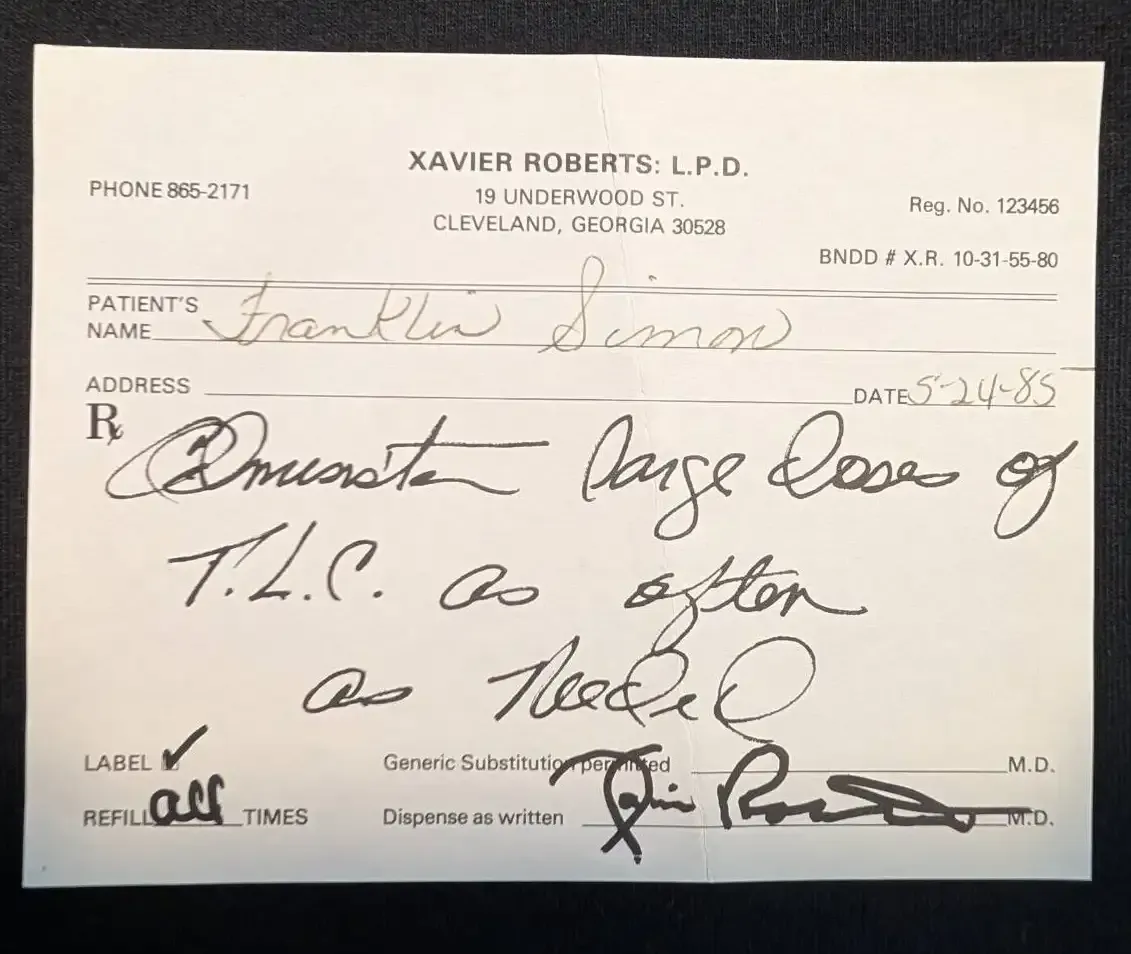 XAVIER ROBERTS: L.P.D.
PHONE 865-2171
19 UNDERWOOD ST.
Reg. No. 123456
CLEVELAND, GEORGIA 30528
BNDD # X.R. 10-31-55-80
PATIENT'S
NAME Franklin Simon
ADDRESS DATE 5-24-85
Rx
Administer large doses of
T.L.C. as often
as Needed
LABEL ✓ Generic Substitution permitted M.D.
REFILL all TIMES Dispense as written Xavier Roberts M.D.